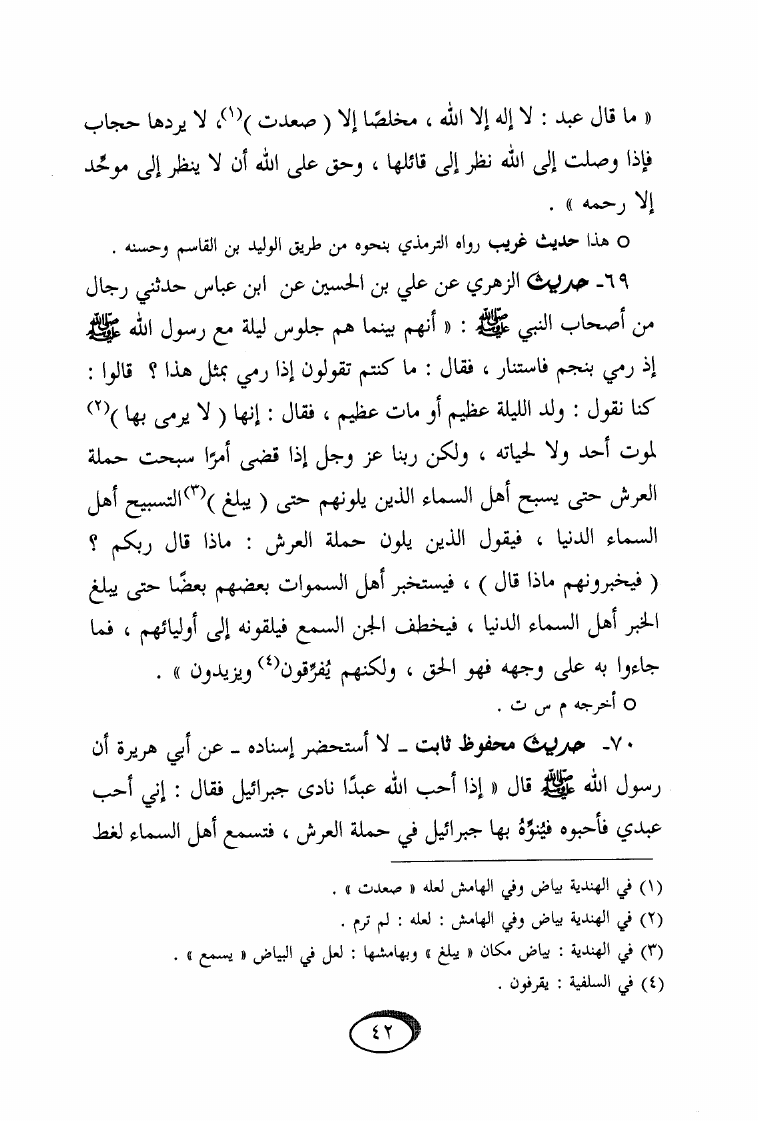 « ما قال عبد : لا إله إلا الله ، مخلصًا إلا ( صعدت )(١)، لا يردها حجاب
فإذا وصلت إلى الله نظر إلى قائلها ، وحق على الله أن لا ينظر إلى موحِّد
إلا رحمه » .
○ هذا حديث غريب رواه الترمذي بنحوه من طريق الوليد بن القاسم وحسنه .
٦٩- حديث الزهري عن علي بن الحسين عن ابن عباس حدثني رجال
من أصحاب النبي ﷺ : « أنهم بينما هم جلوس ليلة مع رسول الله ﷺ
إذ رمي بنجم فاستنار ، فقال : ما كنتم تقولون إذا رمي بمثل هذا ؟ قالوا :
كنا نقول : ولد الليلة عظيم أو مات عظيم ، فقال : إنها ( لا يرمى بها )(٢)
لموت أحد ولا لحياته ، ولكن ربنا عز وجل إذا قضى أمرًا سبحت حملة
العرش حتى يسبح أهل السماء الذين يلونهم حتى ( يبلغ )(٣) التسبيح أهل
السماء الدنيا ، فيقول الذين يلون حملة العرش : ماذا قال ربكم ؟
( فيخبرونهم ماذا قال ) ، فيستخبر أهل السموات بعضهم بعضًا حتى يبلغ
الخبر أهل السماء الدنيا ، فيخطف الجن السمع فيلقونه إلى أوليائهم ، فما
جاءوا به على وجهه فهو الحق ، ولكنهم يُفرِّقون(٤) ويزيدون » .
○ أخرجه م س ت .
٧٠- حديث محفوظ ثابت ـ لا أستحضر إسناده ـ عن أبي هريرة أن
رسول الله ﷺ قال « إذا أحب الله عبدًا نادى جبرائيل فقال : إني أحب
عبدي فأحبوه فيُنوِّهُ بها جبرائيل في حملة العرش ، فتسمع أهل السماء لغط
(١) في الهندية بياض وفي الهامش لعله « صعدت » .
(٢) في الهندية بياض وفي الهامش : لعله : لم ترم .
(٣) في الهندية : بياض مكان « يبلغ » وبهامشها : لعل في البياض « يسمع » .
(٤) في السلفية : يقرفون .
٤٢